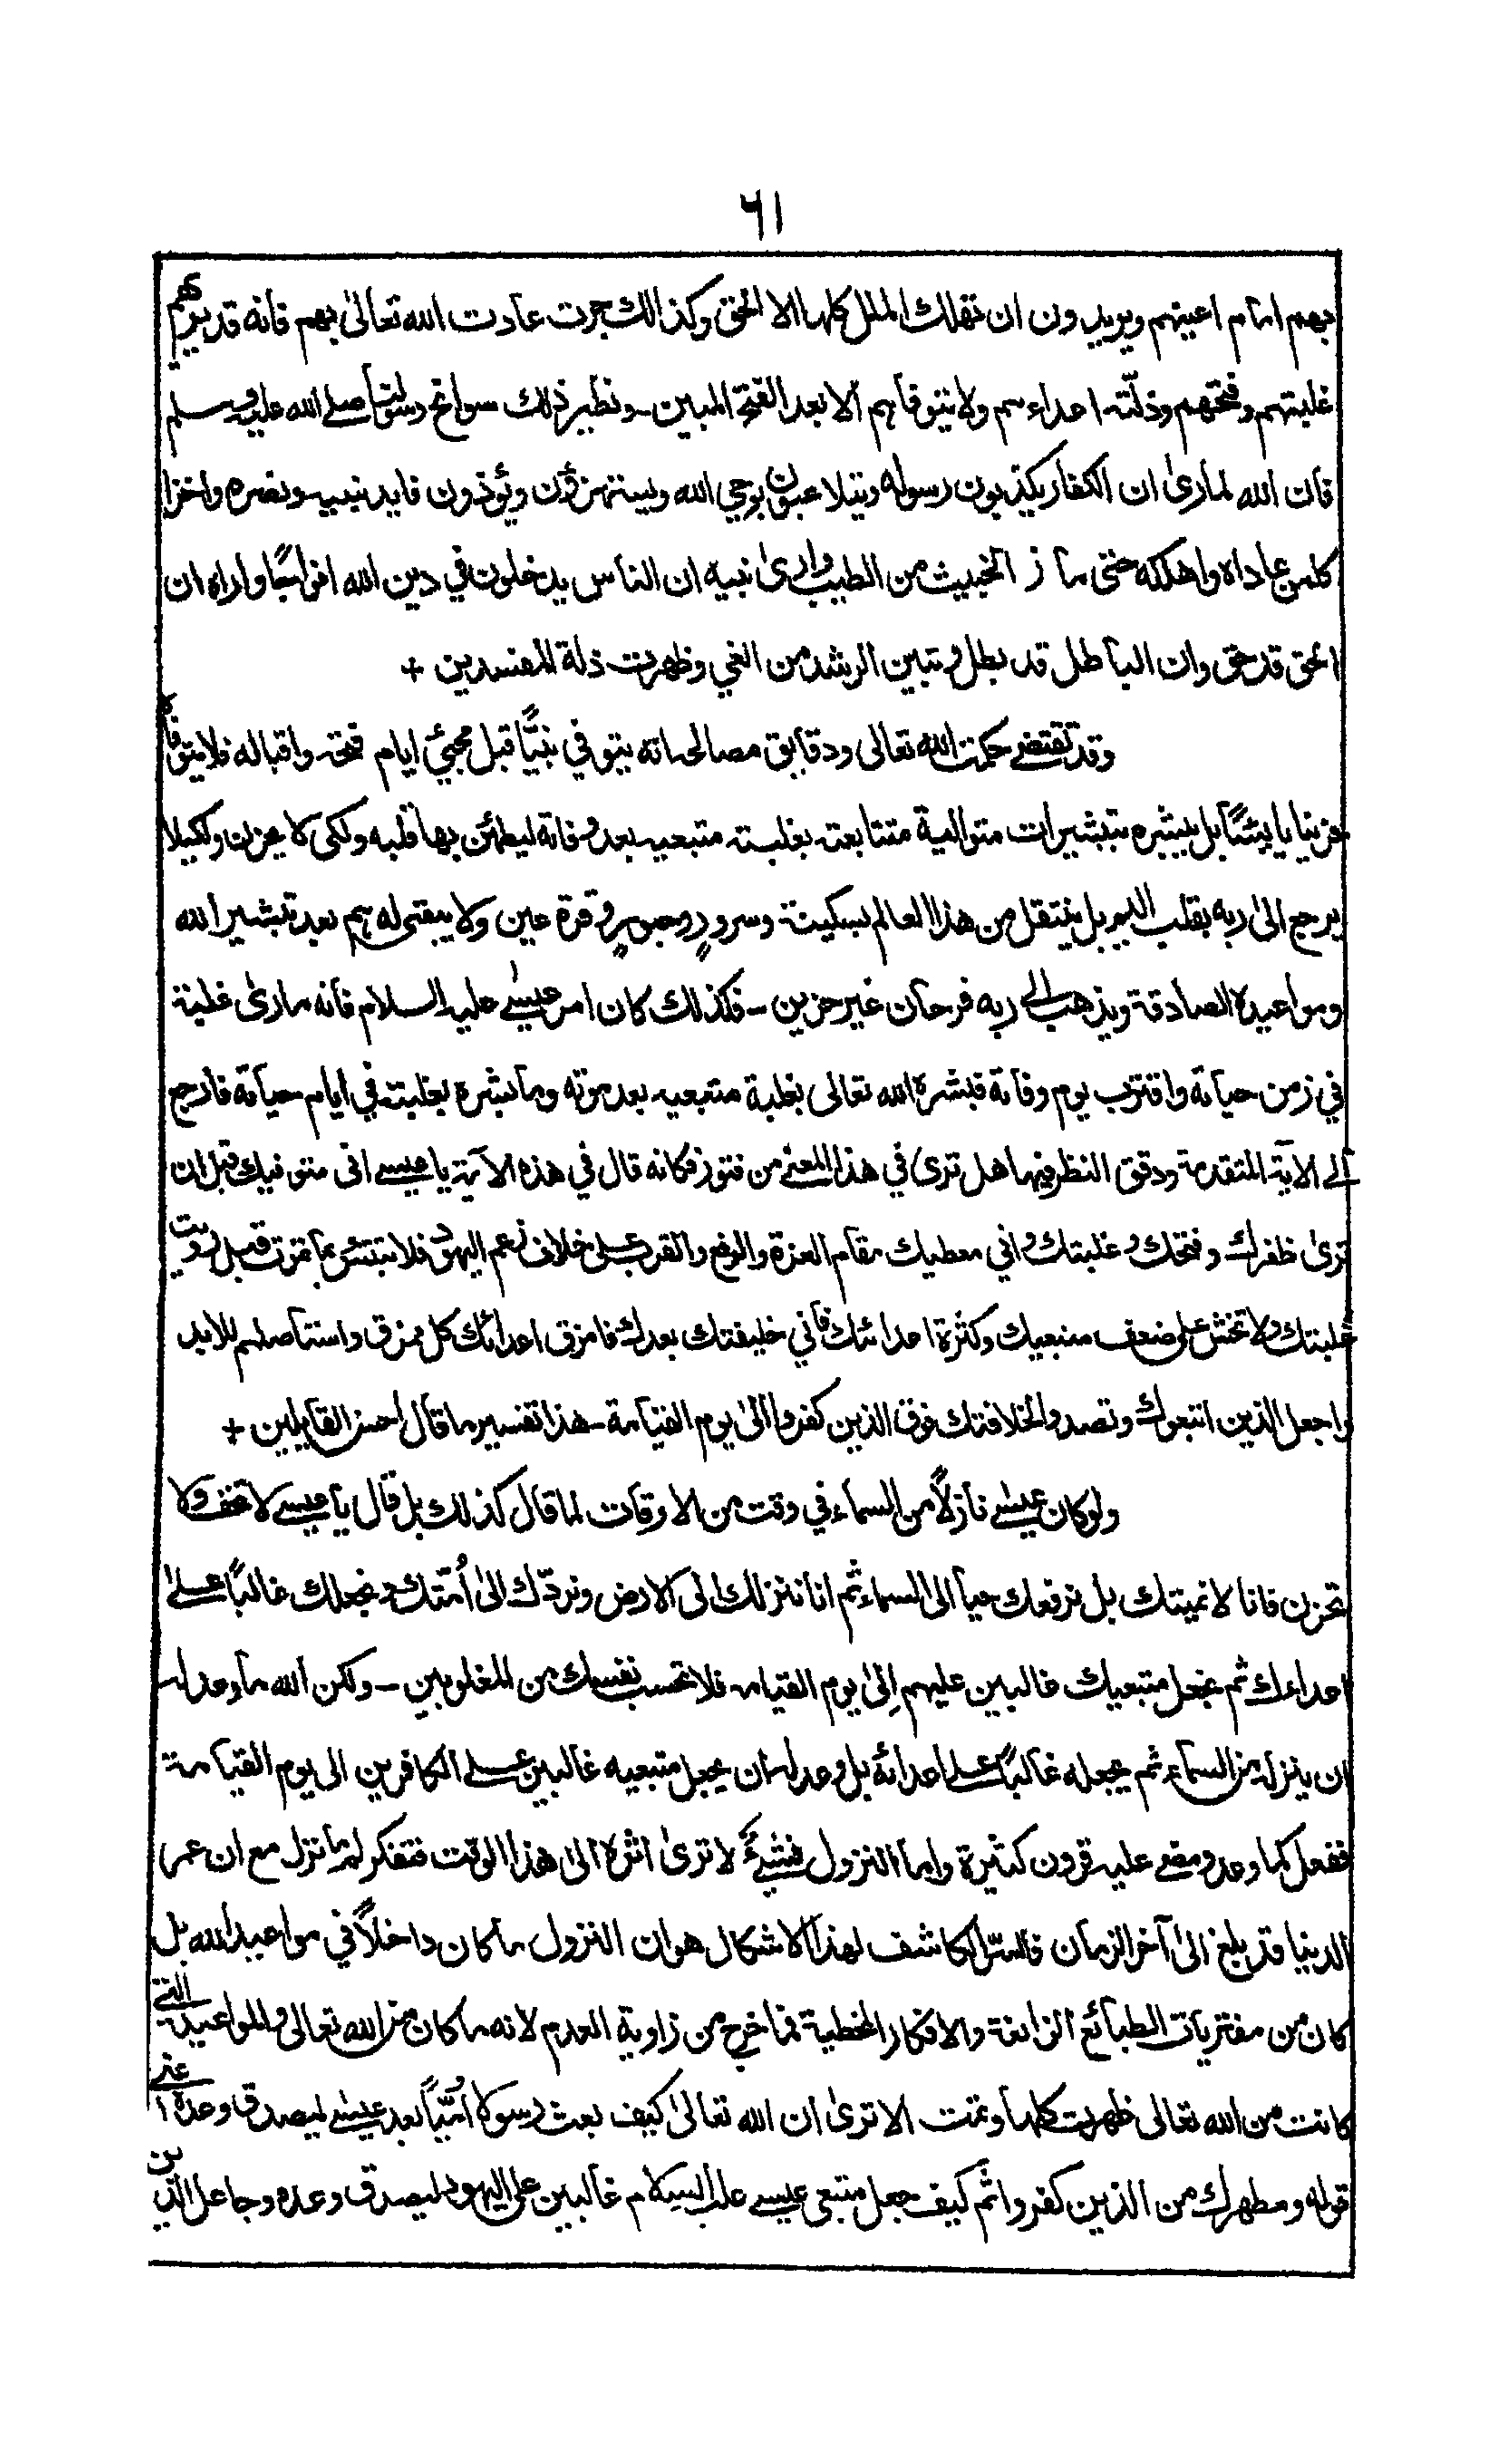 ٦١
بهم امام اعينهم ويريدون ان تهلك الملل كلها الا الحق وكذالك جرت عادت الله تعالىٰ بهم فانه قد يريهم
غلبتهم وفتحهم وذلّة اعداءهم ولا يتوفاهم الا بعد الفتح المبين ـ ونظير ذلك سوانح رسولنا صلے الله عليه وسلم
فان الله لما رىٰ ان الكفار يكذبون رسوله ويتلاعبون بوحي الله ويستهزؤن ويؤذون فايد نبيه ونصره واخزا
كلمن عاداه واهلكه حتى ماز الخبيث من الطيب وارىٰ نبيه ان الناس يدخلون في دين الله افواجًا واراه ان
الحق قد حق وان الباطل قد بطل وتبين الرشد من الغي وظهرت ذلة المفسدين +
وقد تقتضے حكمت الله تعالى ودقايق مصالحه انه يتوفي نبيًّا قبل مجيئ ايام فتحه واقباله فلا يتوفاه
حزينا يايئسًا بل يبشره بتبشيرات متوالية متتابعة بغلبة متبعيه بعد وفاته ليطمئن بها قلبه ولكى لا يحزن ولكيلا
يرجع الىٰ ربه بقلب اليم بل ينتقل من هذا العالم بسكينة وسرورٍ وحبورٍ وقرة عين ولا يبقى له هم بعد تبشير الله
ومواعيده الصادقة ويذهب الى ربه فرحان غير حزين ـ فكذلك كان امر عيسےٰ عليه السلام فانه ما رىٰ غلبة
في زمن حياته واقترب يوم وفاته فبشره الله تعالى بغلبة متبعيه بعد موته وما بشره بغلبته في ايام حياته فارجع
الے الاية المتقدمة ودقق النظر فيها هل ترى في هذا المعنے من فتور فكانه قال في هذه الآية يا عيسے انى متوفيك قبل ان
ترىٰ ظفرك وفتحك وغلبتك واني معطيك مقام العزة والرفع والقرب علىٰ خلاف زعم اليهود فلا تبتئس بما تموت قبل رويت
غلبتك ولا تخش على ضعف متبعيك وكثرة اعدائك فاني خليفتك بعدك فامزق اعدائك كل ممزق واستاصلهم للابد
واجعل الذين اتبعوك وتصدوا لخلافتك فوق الذين كفروا الىٰ يوم القيامة ـ هذا تفسير ما قال احسن القايلين +
ولو كان عيسےٰ نازلاً من السماء في وقت من الاوقات لما قال كذلك بل قال يا عيسے لا تخف ولا
تحزن فانا لا نميتك بل نرفعك حيا الى السماء ثم انا ننزلك الى الارض ونردّك الىٰ اُمّتك ونجعلك غالبًا علىٰ
اعداءك ثم نجعل متبعيك غالبين عليهم اِلىٰ يوم القيامه فلا تحسب نفسك من المغلوبين ـ ولكن الله ما وعد له
ان ينزله من السماء ثم يجعله غالبًا علے اعدائه بل وعد له ان يجعل متبعيه غالبين علے الكافرين الى يوم القيامة
ففعل كما وعد ومضے عليه قرون كثيرة واما النزول فشيءٌ لا ترىٰ اثره الىٰ هذا الوقت فتفكر لم ما نزل مع ان عمر
الدنيا قد بلغ الىٰ آخر الزمان فالسّر الكاشف لهذا الاشكال هو ان النزول ما كان داخلاً في مواعيد الله بل
كان من مفتريات الطبائع الزائغة والافكار المخطية فما خرج من زاوية العدم لانه ما كان من الله تعالى والمواعيد التے
كانت من الله تعالى ظهرت كلها وتمت الا ترىٰ ان الله تعالىٰ كيف بعث رسولا اُمّيًّا بعد عيسےٰ ليصدق وعده اعنے
قوله ومطهرك من الذين كفروا ثم كيف جعل متبعى عيسے عليه السلام غالبين على اليهود ليصدق وعده وجاعل الذين